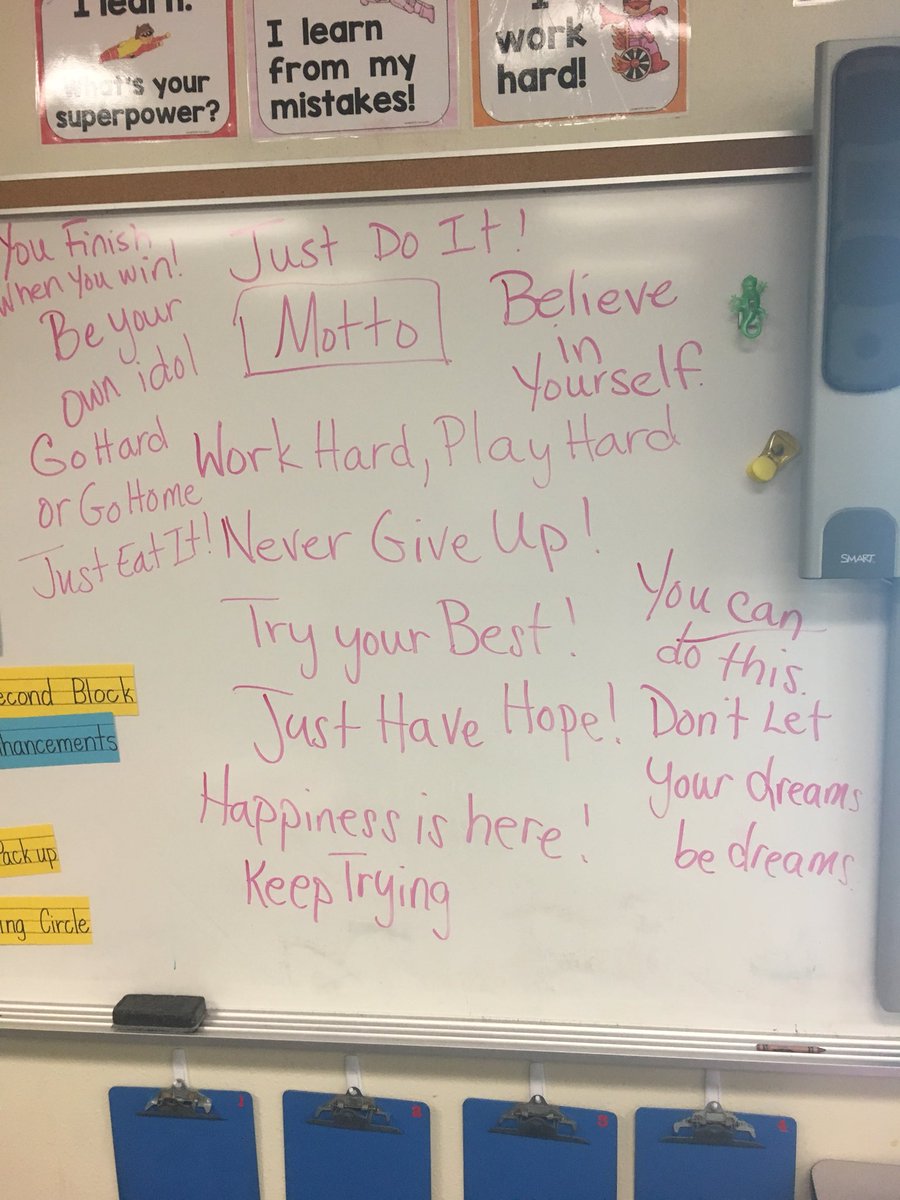 I learn.
what's your
superpower?
I learn
from my
mistakes!
I
work
hard!
You Finish
When You win!
Be your
own idol
Go Hard
or Go Home
Just Eat It!
Just Do It!
Motto
Believe
in
Yourself.
Work Hard, Play Hard
Never Give Up!
Try your Best!
Just Have Hope!
Happiness is here!
Keep Trying
You can
do this.
Don't Let
your dreams
be dreams.
SMART
econd Block
hancements
Pack up
ing Circle
1
2
3
4